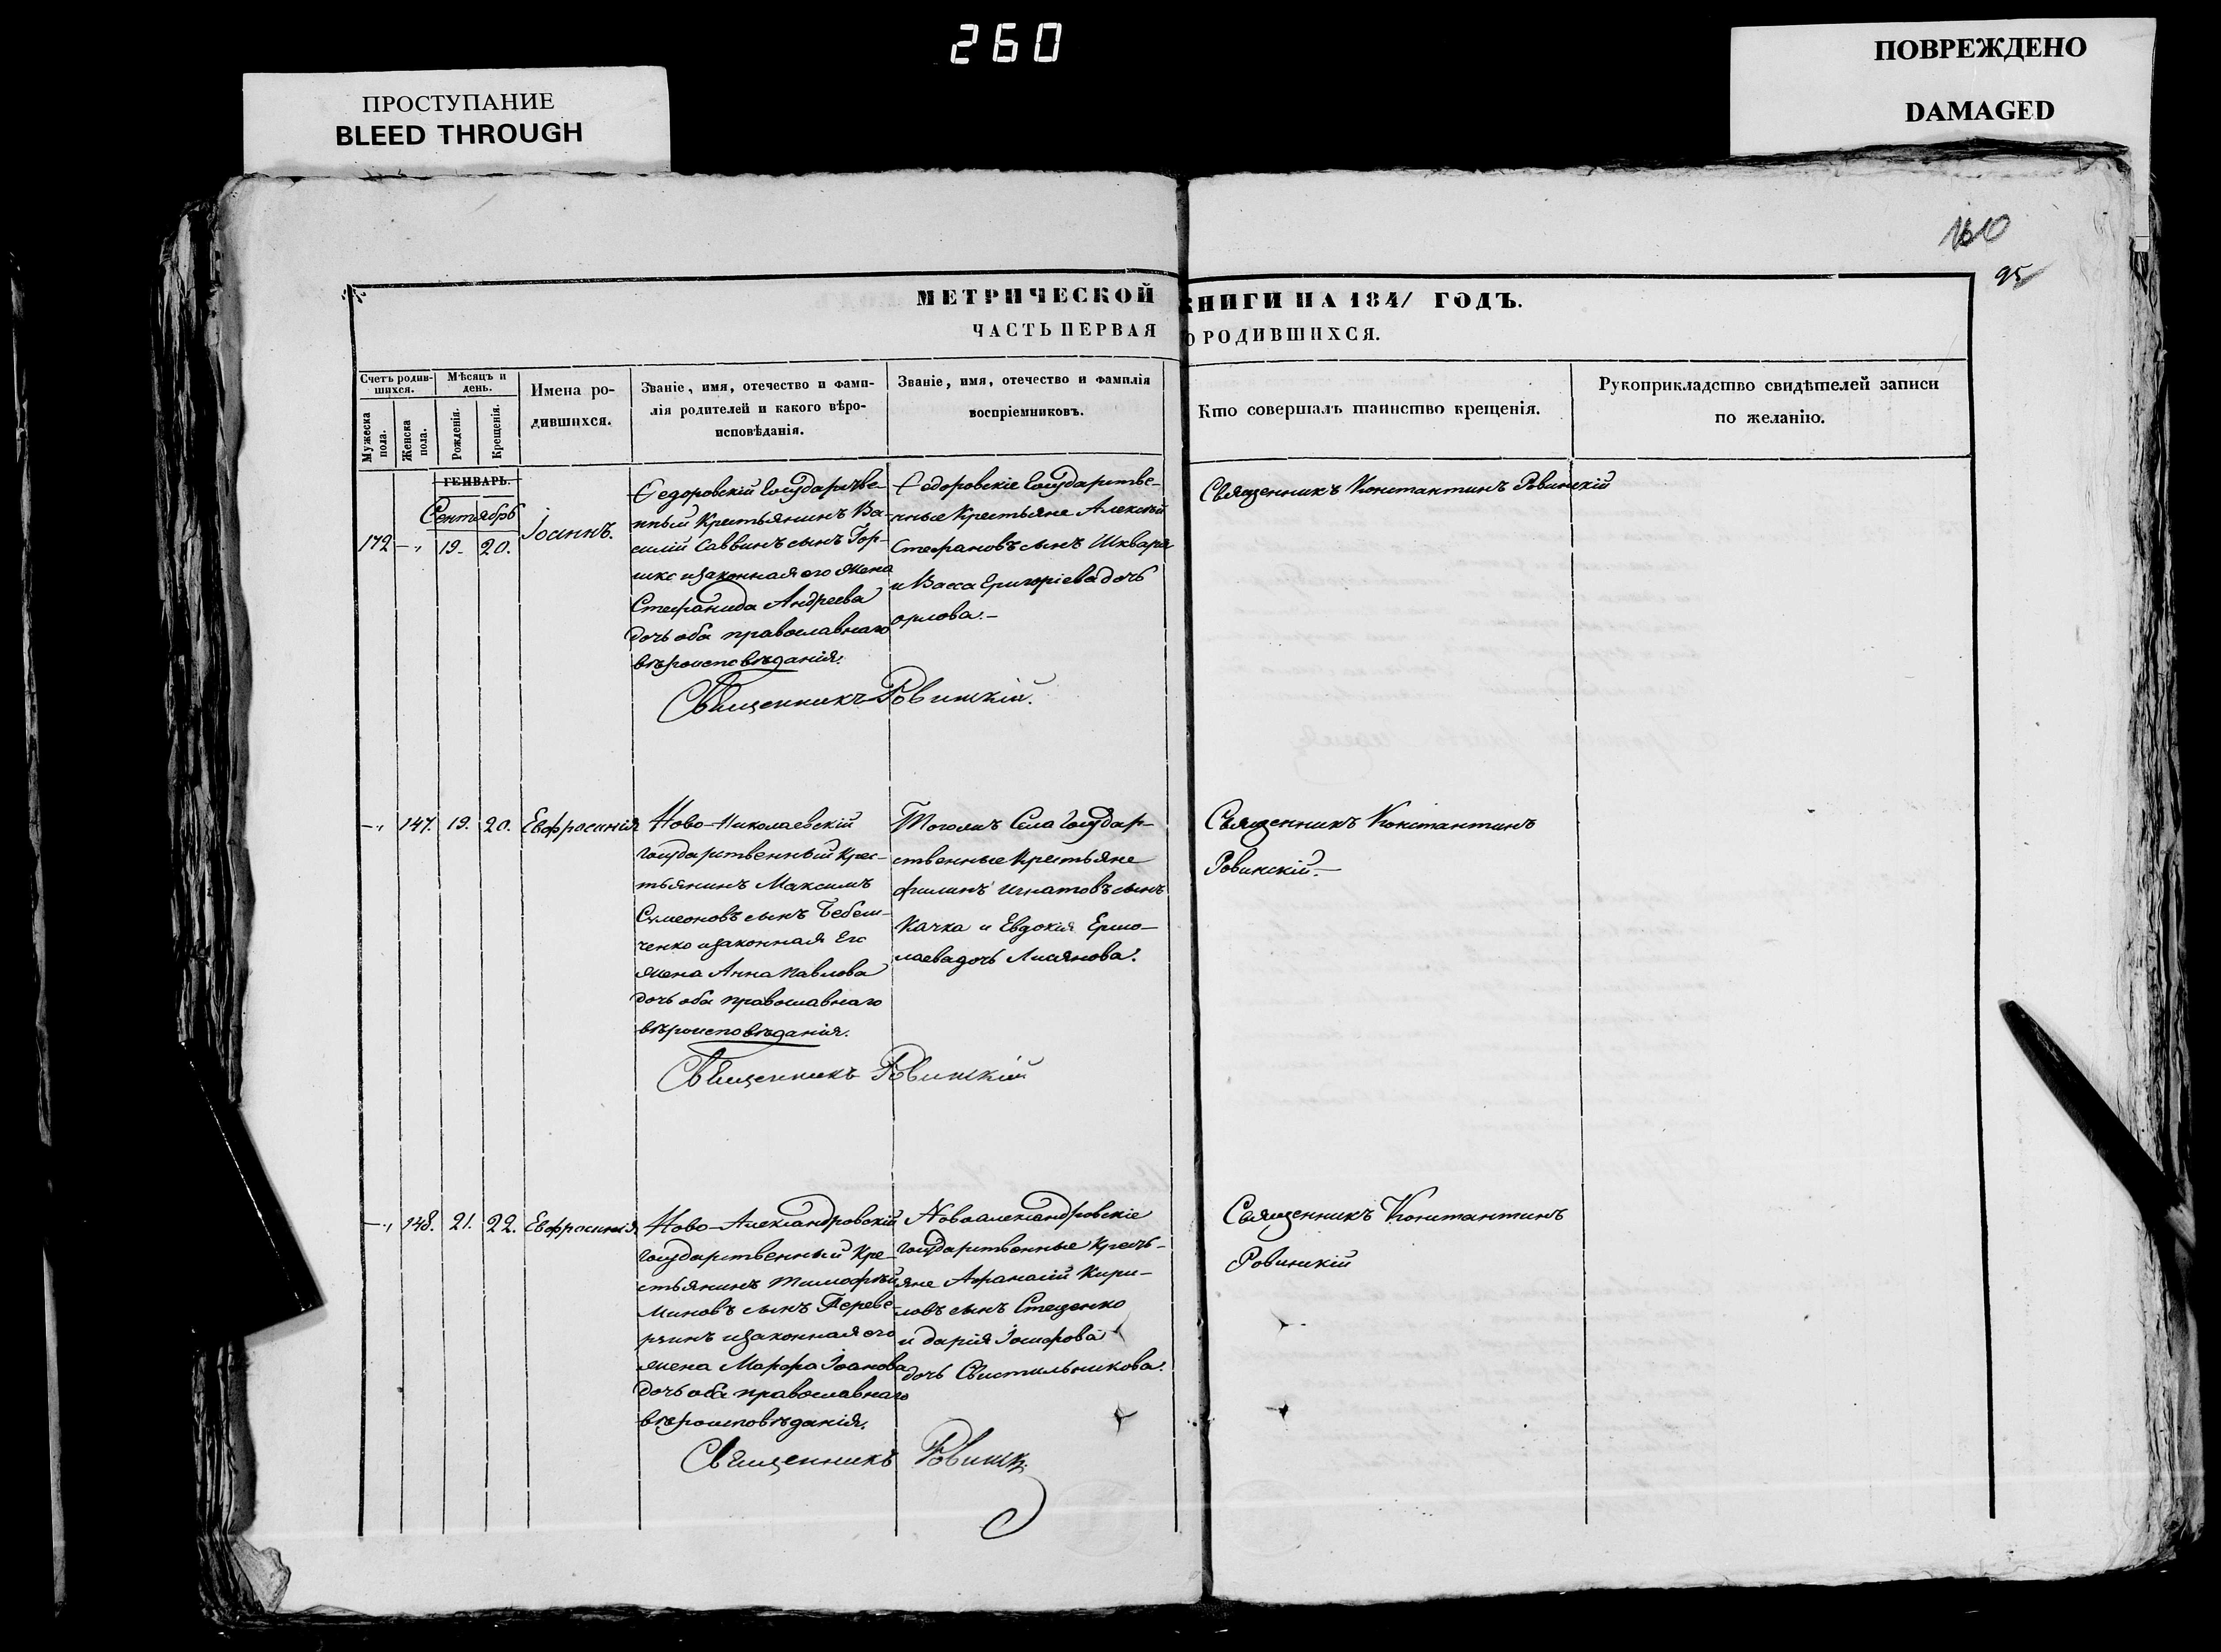 260
ПРОСТУПАНИЕ
BLEED THROUGH
ПОВРЕЖДЕНО
DAMAGED
160
95
МЕТРИЧЕСКОЙ КНИГИ НА 1841 ГОДЪ.
ЧАСТЬ ПЕРВАЯ О РОДИВШИХСЯ.
Счетъ родив-
шихся.
Мужеска
пола.
Женска
пола.
Мѣсяцъ и
день.
Рожденія.
Крещенія.
Имена ро-
дившихся.
Званіе, имя, отечество и фами-
лія родителей и какого вѣро-
исповѣданія.
Званіе, имя, отечество и фамилія
воспріемниковъ.
Кто совершалъ таинство крещенія.
Рукоприкладство свидѣтелей записи
по желанію.
ГЕНВАРЬ.
Сентябрь
172 - 19. 20.
Іоаннъ.
Ѳедоровскій Государстве-
нный Крестьянинъ Ва-
силій Саввинъ сынъ Гор-
шко и законная его жена
Стефанида Андреева
дочь оба православнаго
вѣроисповѣданія.
Ѳедоровскіе Государстве-
нные Крестьяне Алексѣй
Стефановъ сынъ Шкваря
и Васса Григоріева дочь
орлова.-
Священникъ Константинъ Ровинскій
Священникъ Ровинскій.
- 147. 19. 20.
Евфросинія
Ново-Николаевскій
государственный Крес-
тьянинъ Максимъ
Сѵмеоновъ сынъ Бебеш-
ченко и законная Его
жена Анна Павлова
дочь оба православнаго
вѣроисповѣданія.
Тогожъ Села Государ-
ственные Крестьяне
филипъ Игнатовъ сынъ
Качка и Евдокія Ермо-
лаева дочь Лисянова.
Священникъ Константинъ
Ровинскій.-
Священникъ Ровинскій
- 148. 21. 22.
Евфросинія
Ново-Александровскій
государственный Кре-
стьянинъ Тимофѣй
Миновъ сынъ Переве-
рзинъ и законная его
жена Марфа Іоанова
дочь оба православнаго
вѣроисповѣданія.
Новоалександровскіе
государственные Кресть-
яне Афанасій Кири-
ловъ сынъ Стеценко
и дарія Іосифова
дочь Свистильникова.
Священникъ Константинъ
Ровинскій
Священникъ Ровинск: